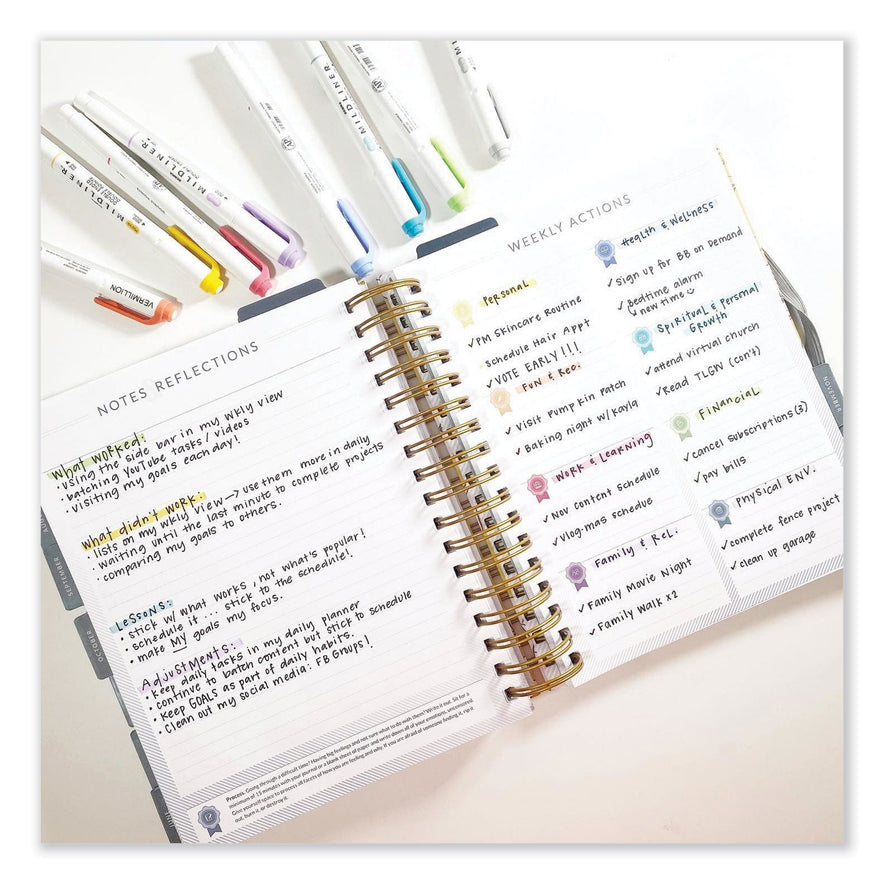 MILDLINER
MILDLINER
MILDLINER
VERMILLION
NOTES REFLECTIONS
What worked:
• using the side bar in my wkly view
• batching YouTube tasks/videos
• visiting my goals each day!
What didn't work:
• lists on my wkly view → use them more in daily
• waiting until the last minute to complete projects
• comparing my goals to others.
Lessons:
• stick w/ what works, not what's popular!
• schedule it... stick to the schedule!
• make MY goals my focus.
Adjustments:
• keep daily tasks in my daily planner
• continue to batch content but stick to schedule
• keep GOALS as part of daily habits.
• Clean out my social media: FB Groups!
Process. Going through a difficult time? Having big feelings and not sure what to do with them? Write it out. Sit for a
minimum of 15 minutes with your journal or a blank sheet of paper and write down all of your emotions, uncensored.
Give yourself space to process all facets of how you are feeling and why. If you are afraid of someone finding it, rip it
out, burn it, or destroy it.
SEPTEMBER
OCTOBER
WEEKLY ACTIONS
Personal
✓PM Skincare Routine
Schedule Hair Appt
✓VOTE EARLY!!!
Fun & Rec.
✓ Visit Pumpkin Patch
✓ Baking night w/ Kayla
Work & Learning
✓ Nov content schedule
✓ Vlog-mas schedue
Family & Rel.
✓ Family Movie Night
✓ Family Walk x2
Health & Wellness
✓ Sign up for BB on Demand
✓ Bedtime alarm
↳ new time
Spiritual & Personal
Growth
✓ attend virtual church
✓ Read TLGW (con't)
Financial
✓ cancel subscriptions (3)
✓ pay bills
Physical ENV.
✓ complete fence project
✓ clean up garage
NOVEMBER